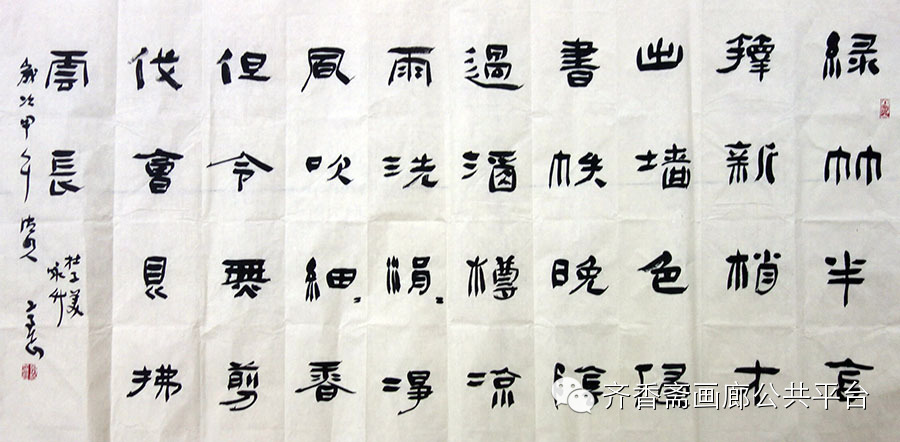 綠竹半含
籜新梢才
出墙色侵
書帙晚陰
過酒樽凉
雨洗涓=淨
風吹細=香
但令無剪
伐會見拂
雲長
杜子美
咏竹
歲次甲午
齐香斋画廊公共平台